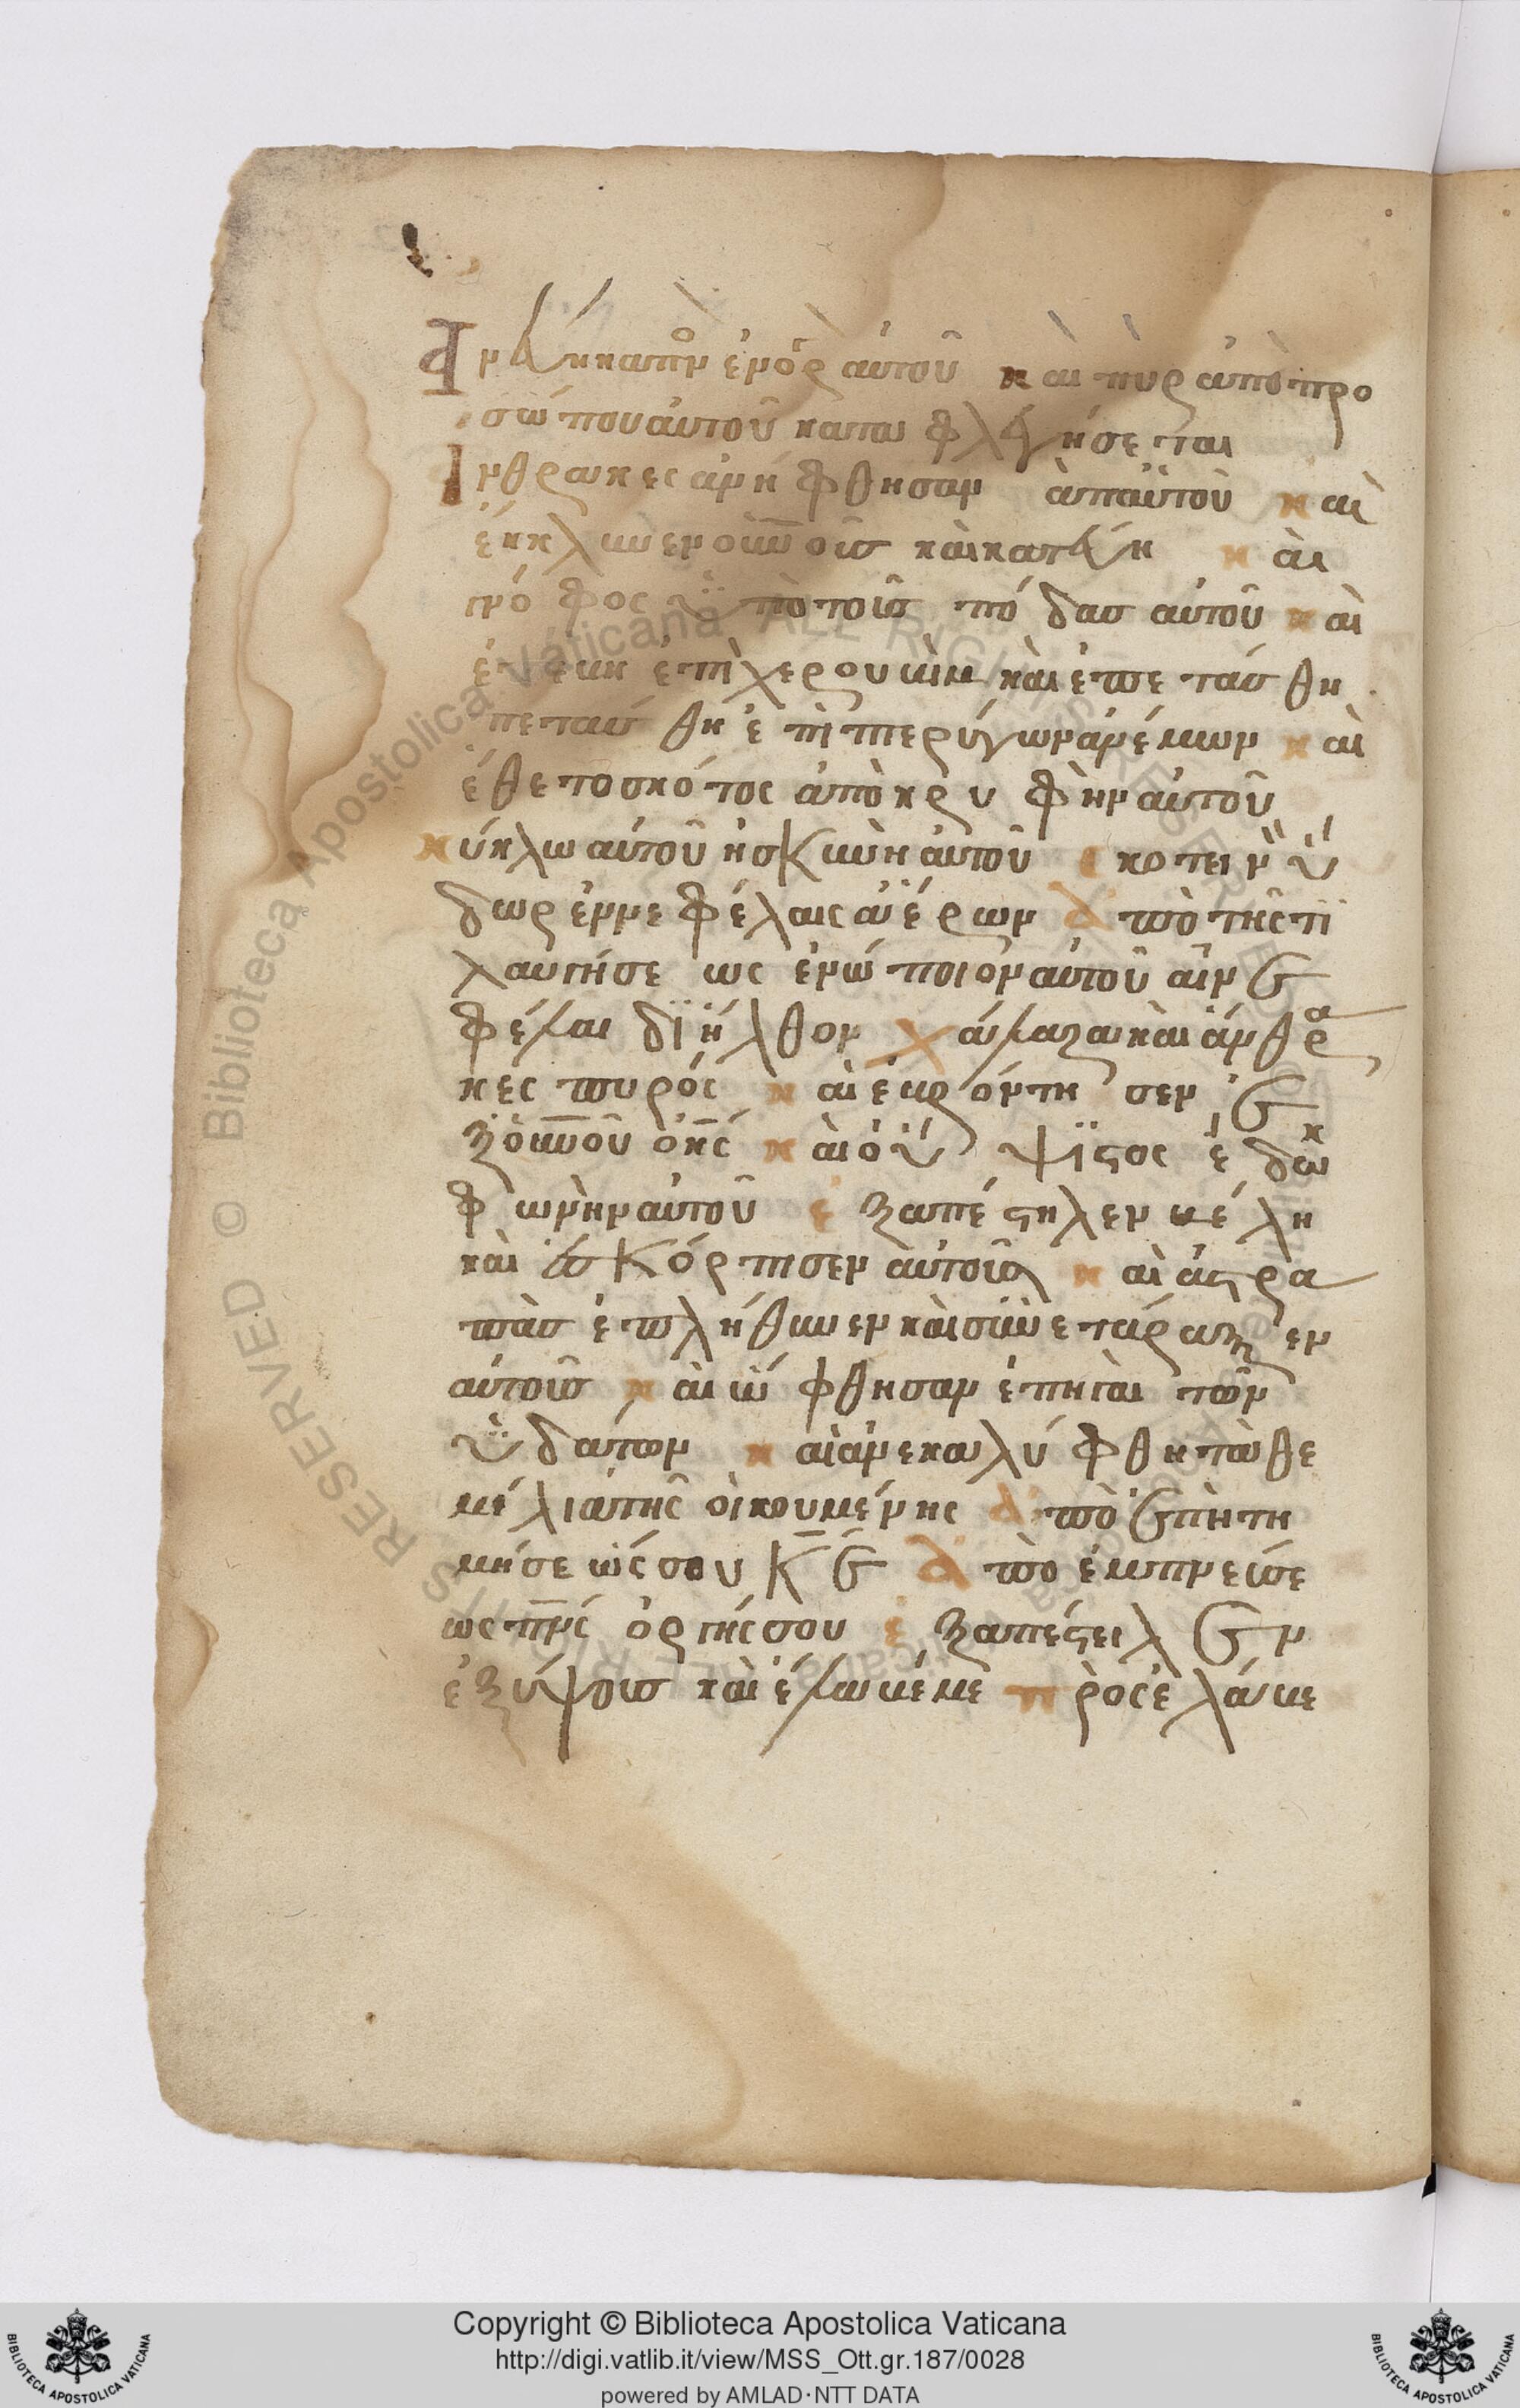 ἀνέβη καπνὸς ἐν ὀργῇ αὐτοῦ καὶ πῦρ ἀπὸ προ
σώπου αὐτοῦ καταφλογήσεται
ἄνθρακες ἀνήφθησαν ἀπ αὐτοῦ καὶ
ἔκκλινεν οὐνοὺς καὶ κατέβη καὶ
γνόφος ὑπὸ τοὺς πόδας αὐτοῦ καὶ
ἐπέβη ἐπὶ χερουβὶμ καὶ ἐπετάσθη
πετάσθη ἐπὶ πτερύγων ἀνέμων καὶ
ἔθετο σκότος ἀποκρυφὴν αὐτοῦ
κύκλω αὐτοῦ ἡ σκηνὴ αὐτοῦ σκοτεινὸν ὕ
δωρ ἐν νεφέλαις ἀέρων ἀπὸ τῆς τη
λαυγήσεως ἐνώπιον αὐτοῦ αἱ νε
φέλαι διῆλθον χάλαζα καὶ ἄνθρα
κες πυρός καὶ ἐβρόντησεν ἐ
ξ οὐνοῦ ὁ κς καὶ ὁ ὕψιστος ἔδωκε
φωνὴν αὐτοῦ ἐξαπέστηλεν βέλη
καὶ ἐσκόρπισεν αὐτοὺς καὶ ἀστρα
πὰς ἐπλήθυνεν καὶ συνετάραξεν
αὐτοὺς καὶ ὤφθησαν ἑ πηγαὶ τῶν
ὑδάτων καὶ ἀνεκαλύφθη τὰ θε
μέλια τῆς οἰκουμένης ἀπὸ ἐπητη
μήσεώς σου κε ἀπὸ ἐμπνεύσε
ως πνς ὀργῆς σου ἐξαπέστειλεν
ἐξ ὕψους καὶ ἔλαβέ με προσελάβε